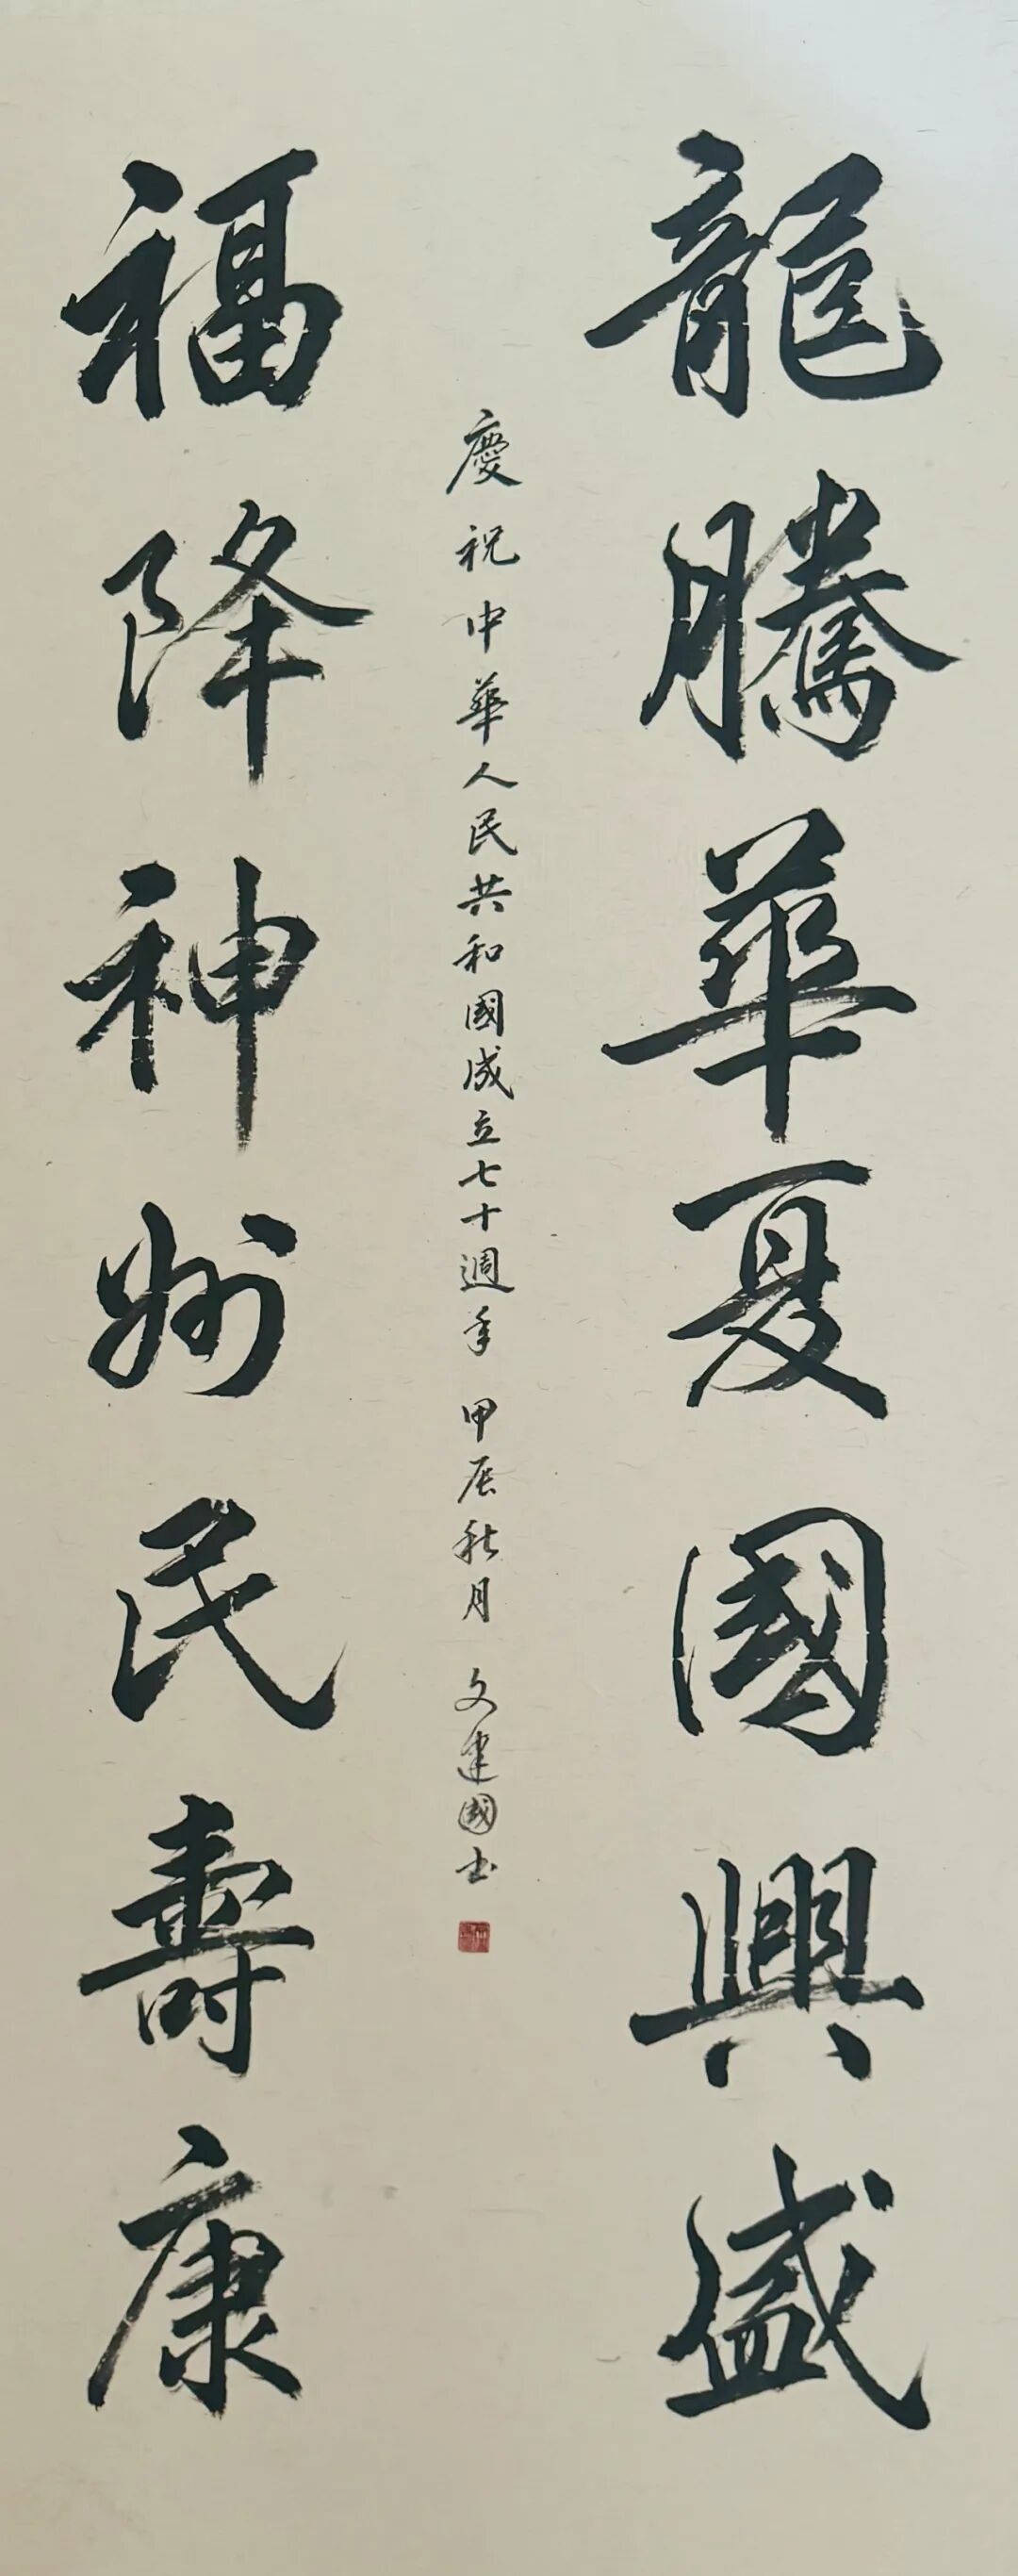 龍騰華夏國興盛
慶祝中華人民共和國成立七十週年 甲辰秋月 文建國书
福降神州民壽康